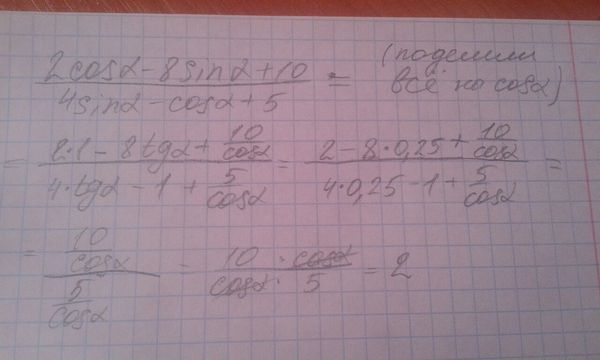 (2cosα - 8sinα + 10)/(4sinα - cosα + 5) = (поделили всё на cosα)
= (2·1 - 8tgα + 10/cosα)/(4·tgα - 1 + 5/cosα) = (2 - 8·0,25 + 10/cosα)/(4·0,25 - 1 + 5/cosα) =
= (10/cosα)/(5/cosα) = 10/cosα · cosα/5 = 2